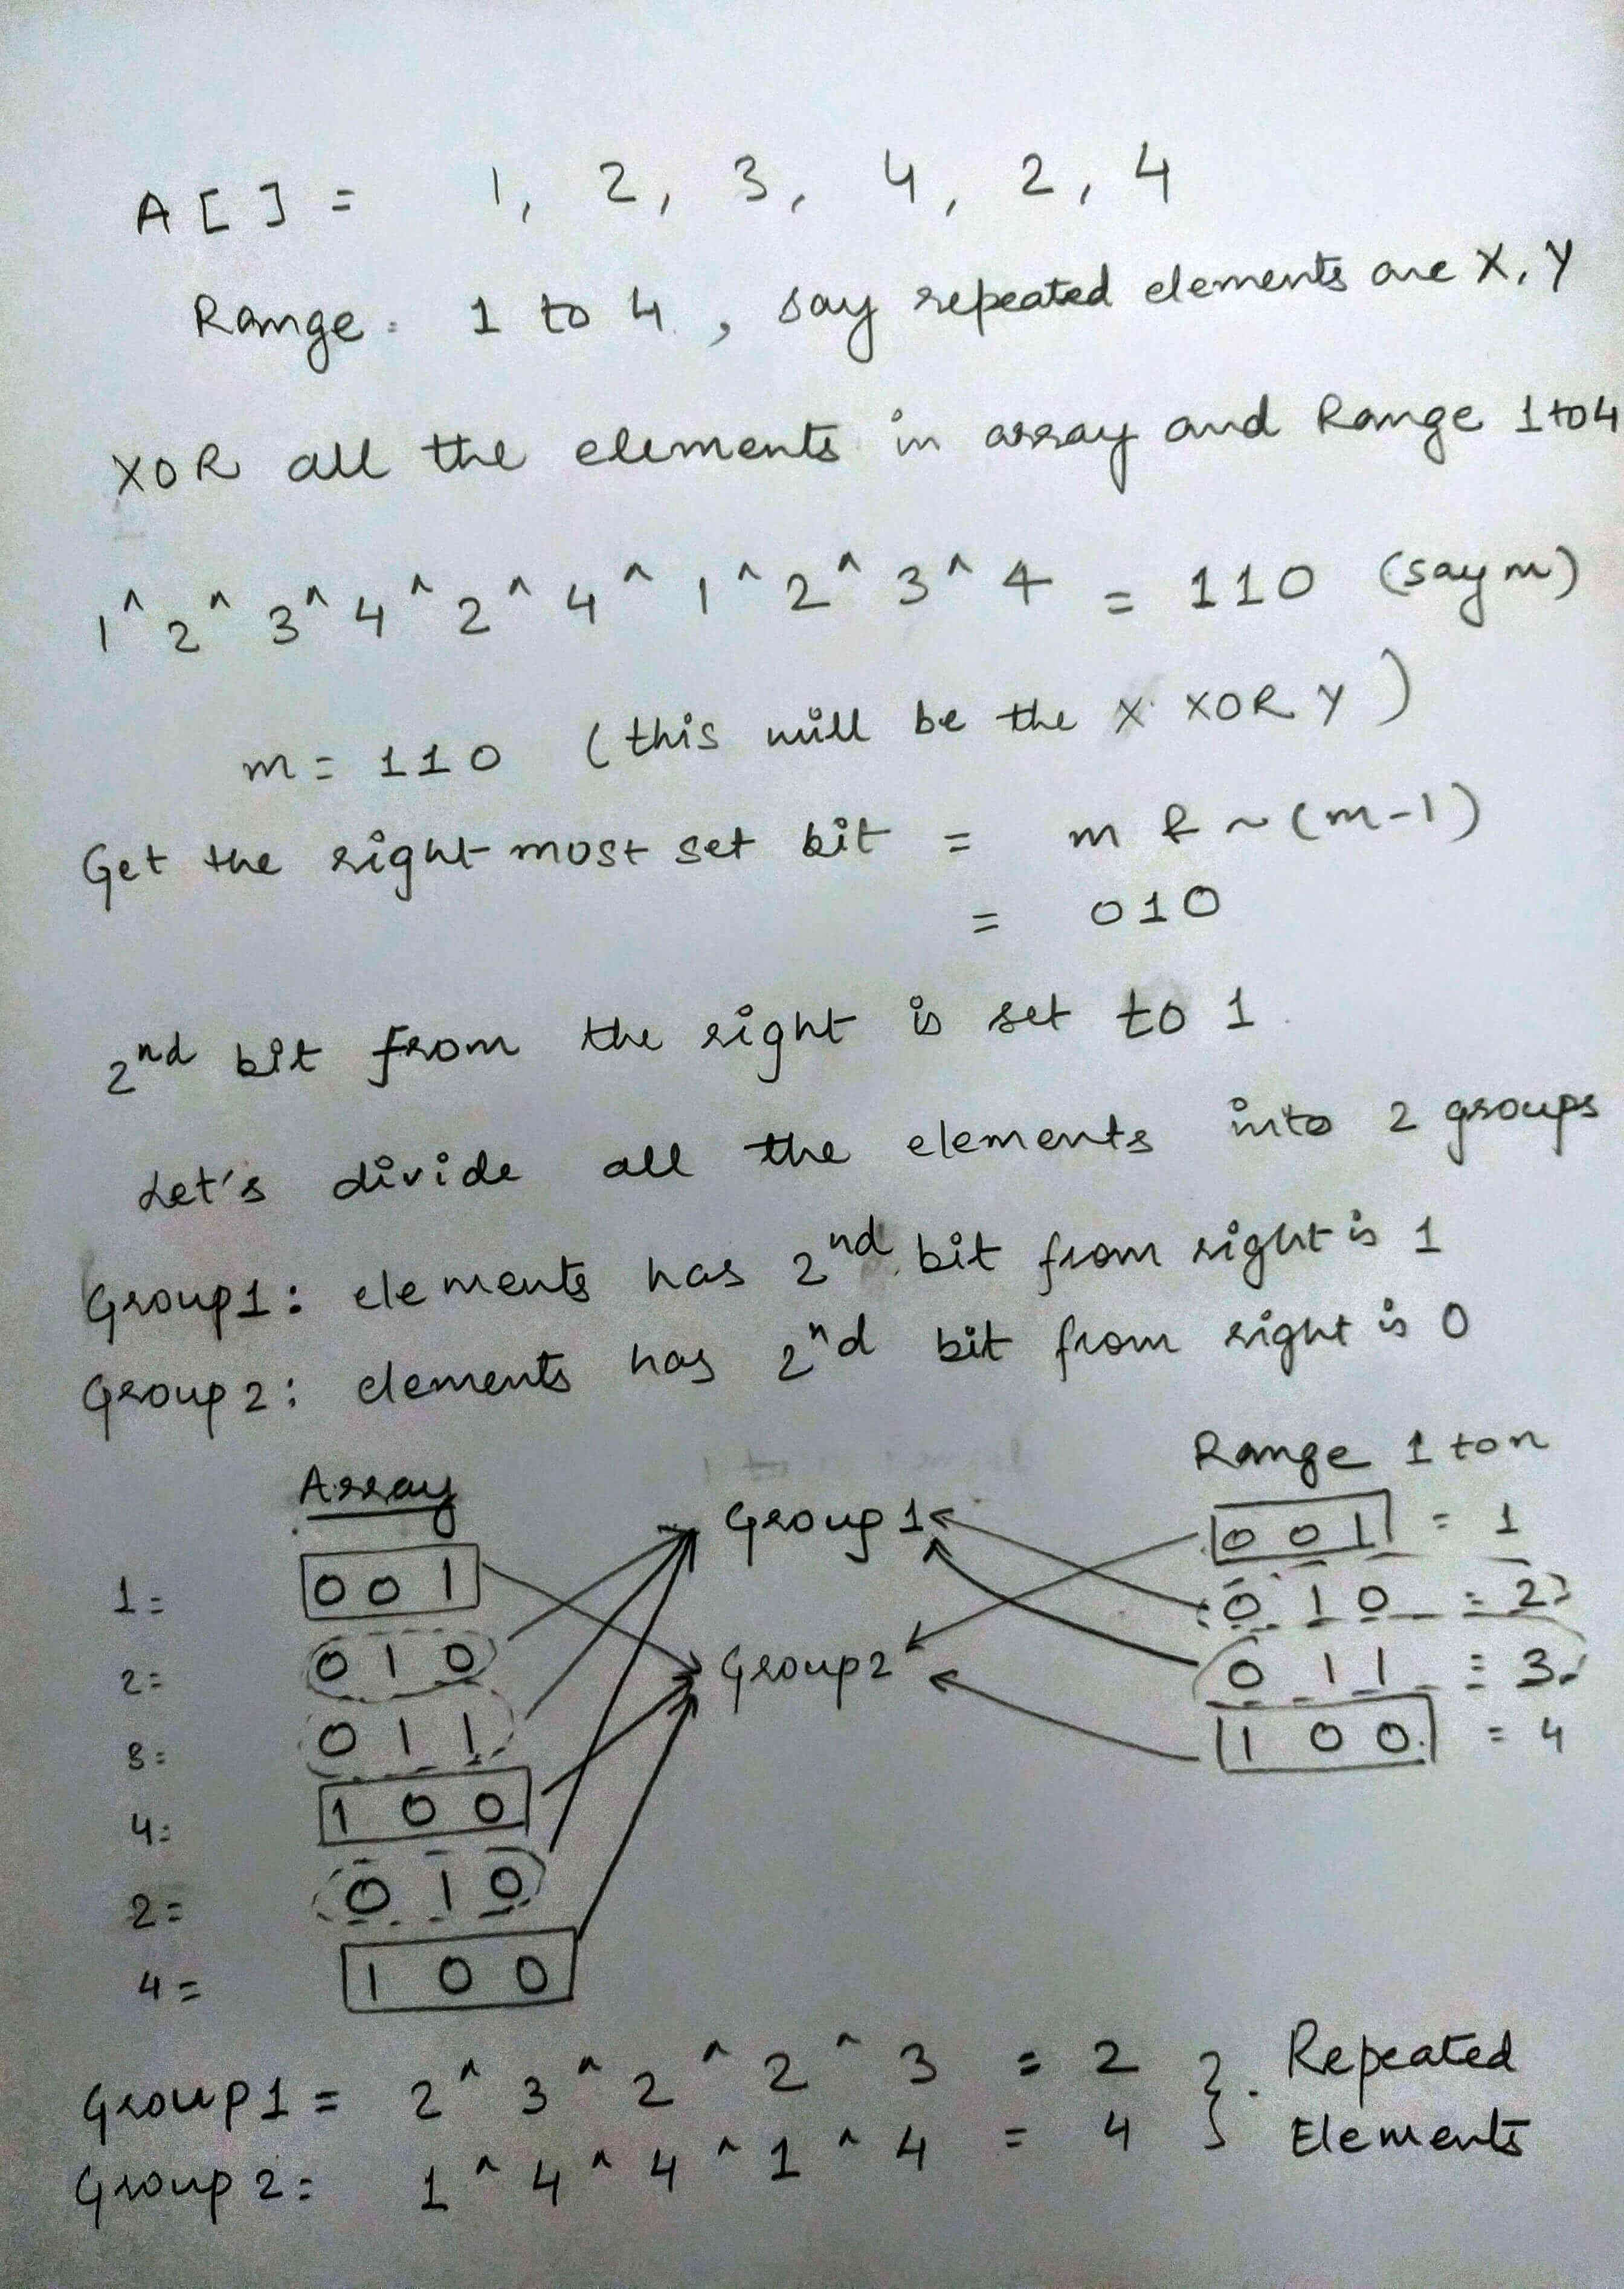 A[] = 1, 2, 3, 4, 2, 4
Range: 1 to 4, say repeated elements are X, Y
XOR all the elements in array and Range 1 to 4
1^2^3^4^2^4^1^2^3^4 = 110 (say m)
m = 110 (this will be the X XOR Y)
Get the right most set bit = m & ~(m-1)
= 010
2nd bit from the right is set to 1
Let's divide all the elements into 2 groups
Group1: elements has 2nd bit from right is 1
Group2: elements has 2nd bit from right is 0
Array
Range 1 to n
Group 1
Group 2
1= 001
2= 010
3= 011
4= 100
2= 010
4= 100
001 = 1
010 = 2
011 = 3
100 = 4
Group1 = 2^3^2^2^3 = 2
Group2: 1^4^4^1^4 = 4
} Repeated
Elements